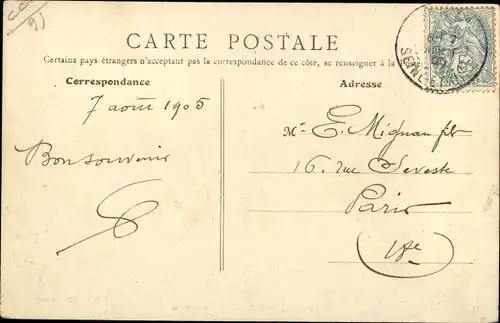 CARTE POSTALE
Certains pays étrangers n'acceptant pas la correspondance de ce côté, se renseigner à la
Correspondance
Adresse
7 août 1905
Bon souvenir
Mr E. Mignan fils
16, rue Seveste
Paris